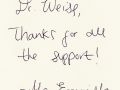 Dr. Weiss,
Thanks for all
the support!